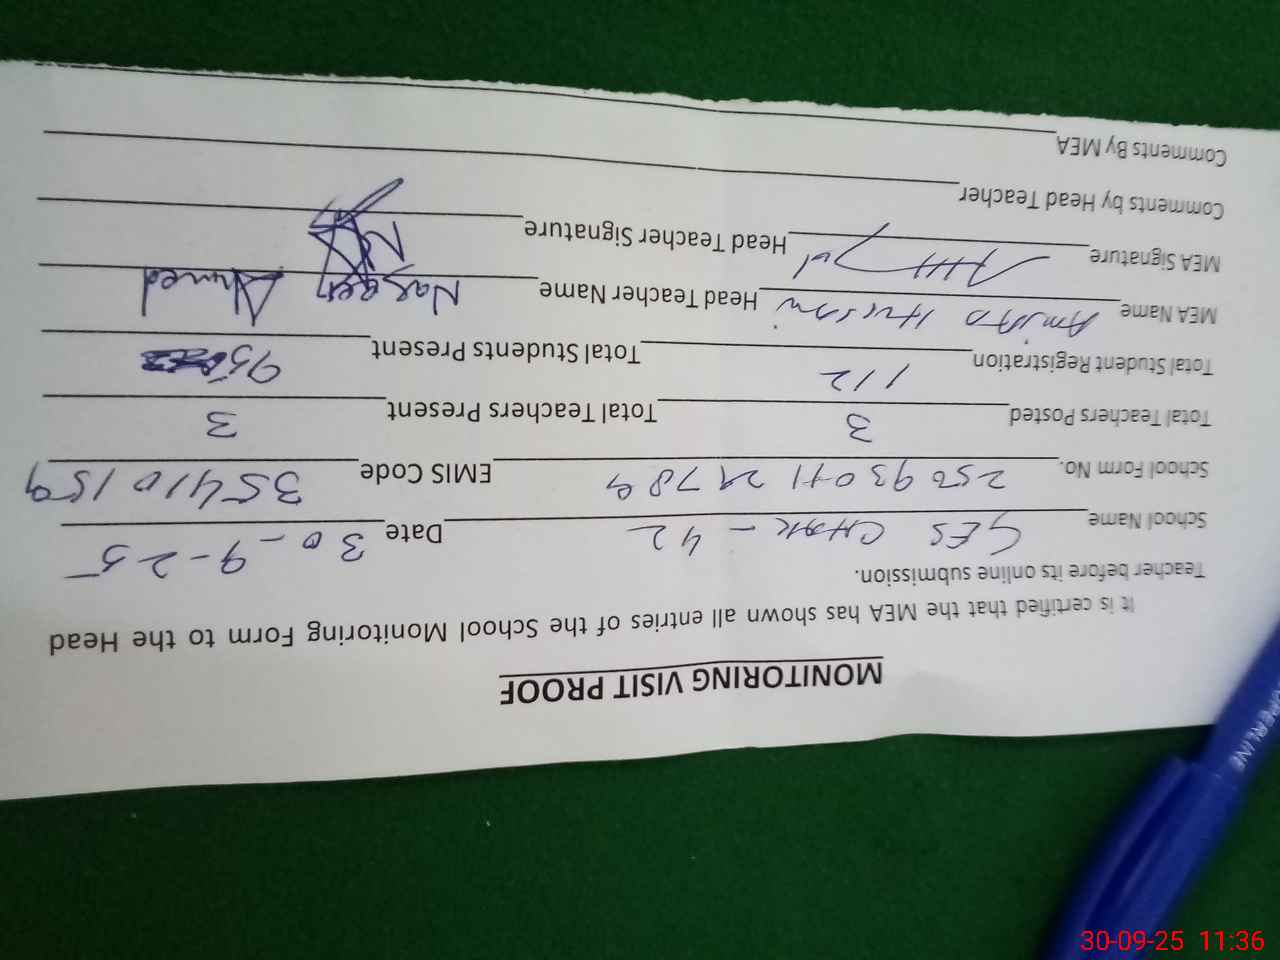 MONITORING VISIT PROOF
It is certified that the MEA has shown all entries of the School Monitoring Form to the Head
Teacher before its online submission.
School Name GES CHAK - 42 Date 30-9-25
School Form No. EMIS Code 35410159
Total Teachers Posted 3 Total Teachers Present 3
Total Student Registration 112 Total Students Present 95
MEA Name AMJAD Hussain Head Teacher Name Ahmed
MEA Signature Head Teacher Signature
Comments by Head Teacher
Comments By MEA
30-09-25 11:36